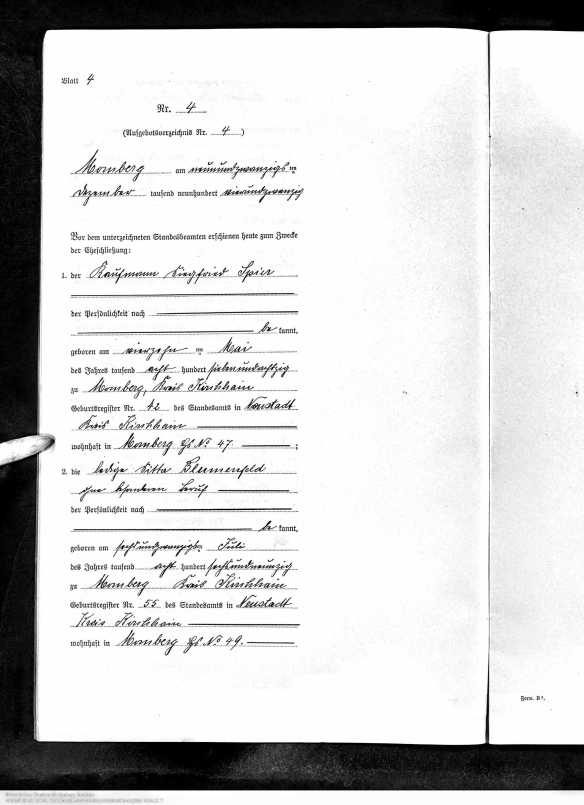 Blatt 4
Nr. 4
(Aufgebotsverzeichnis Nr. 4)
Momberg am neunundzwanzigsten
Dezember tausend neunhundert vierundzwanzig
Vor dem unterzeichneten Standesbeamten erschienen heute zum Zwecke
der Eheschließung:
1. der Kaufmann Siegfried Spier
der Persönlichkeit nach
be kannt,
geboren am vierzehnten Mai
des Jahres tausend acht hundert siebenundachtzig
zu Momberg, Kreis Kirchhain
Geburtsregister Nr. 42 des Standesamts in Neustadt
Kreis Kirchhain
wohnhaft in Momberg Hs No 47 ;
2. die ledige Ditta Blumenfeld
ohne besonderen Beruf
der Persönlichkeit nach
be kannt,
geboren am sechsundzwanzigsten Juli
des Jahres tausend acht hundert sechsundneunzig
zu Momberg Kreis Kirchhain
Geburtsregister Nr. 55 des Standesamts in Neustadt
Kreis Kirchhain
wohnhaft in Momberg Hs No 49.
Form. B¹.